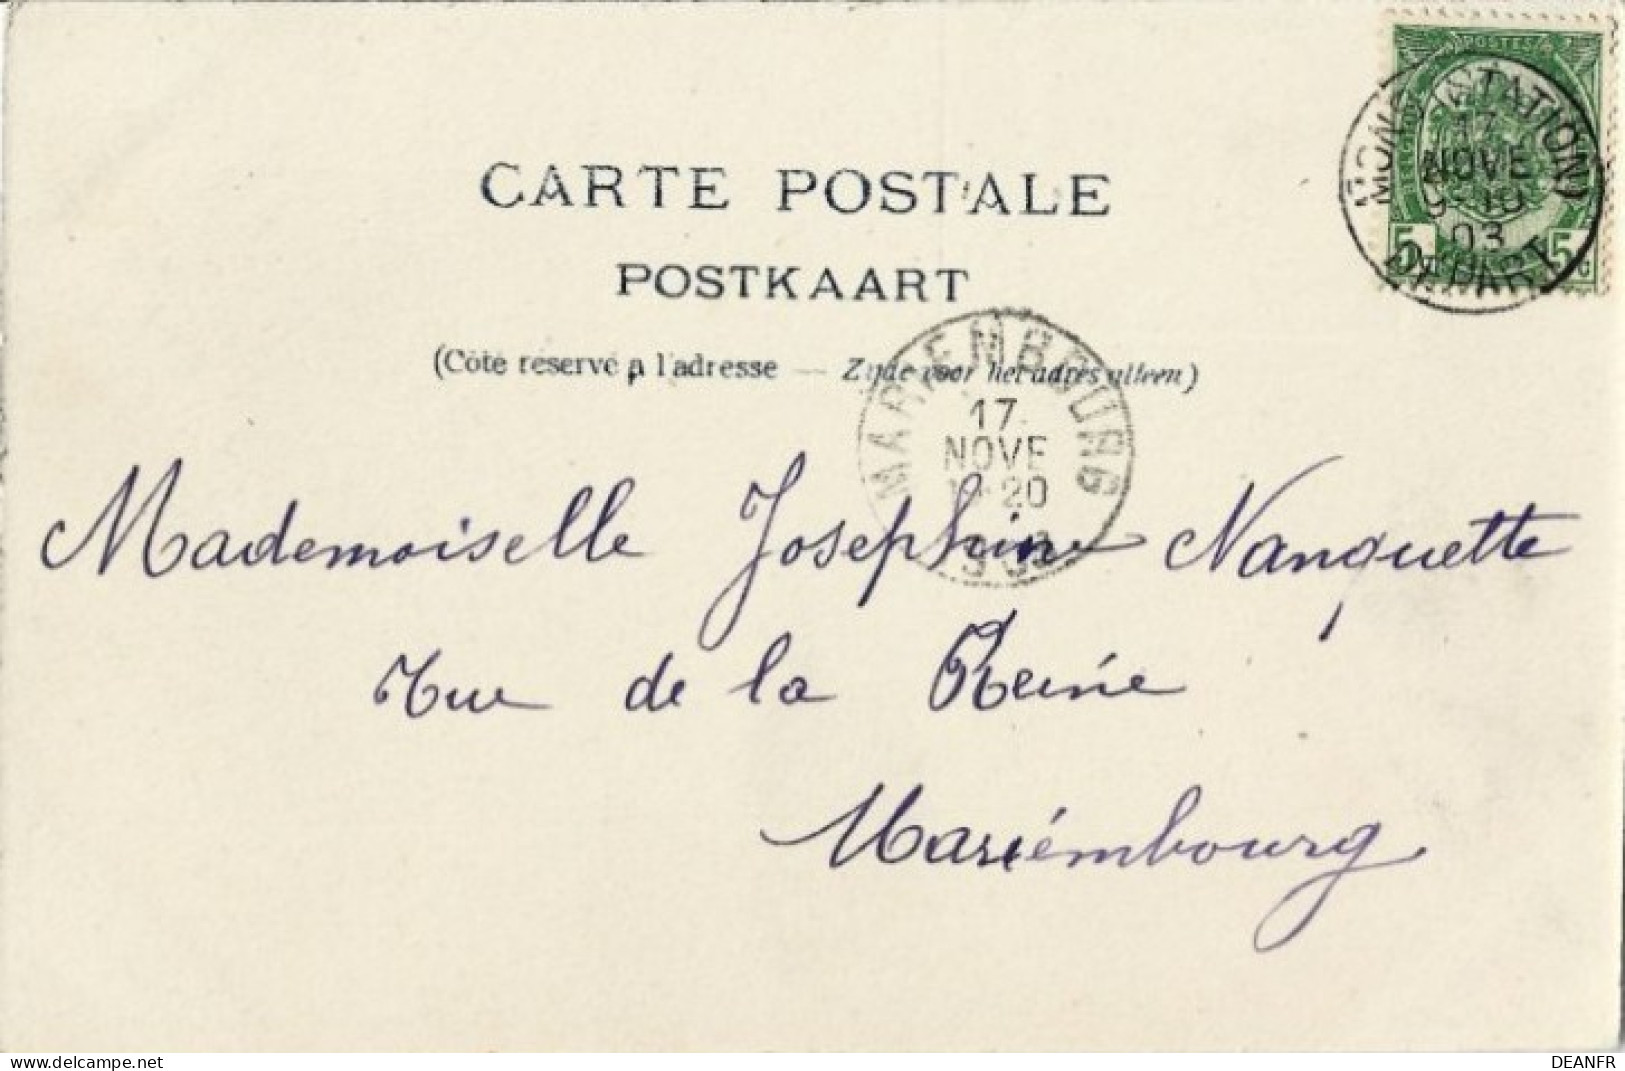 POSTES
MONS (STATION)
17
NOVE
9-10
03
DEPART
5 5
CARTE POSTALE
POSTKAART
(Côté réservé a l'adresse — Zijde voor het adres alleen)
MARIEMBOURG
17
NOVE
-20
Mademoiselle Josephine Nanquette
Rue de la Reine
Mariémbourg
www.delcampe.net
DEANFR